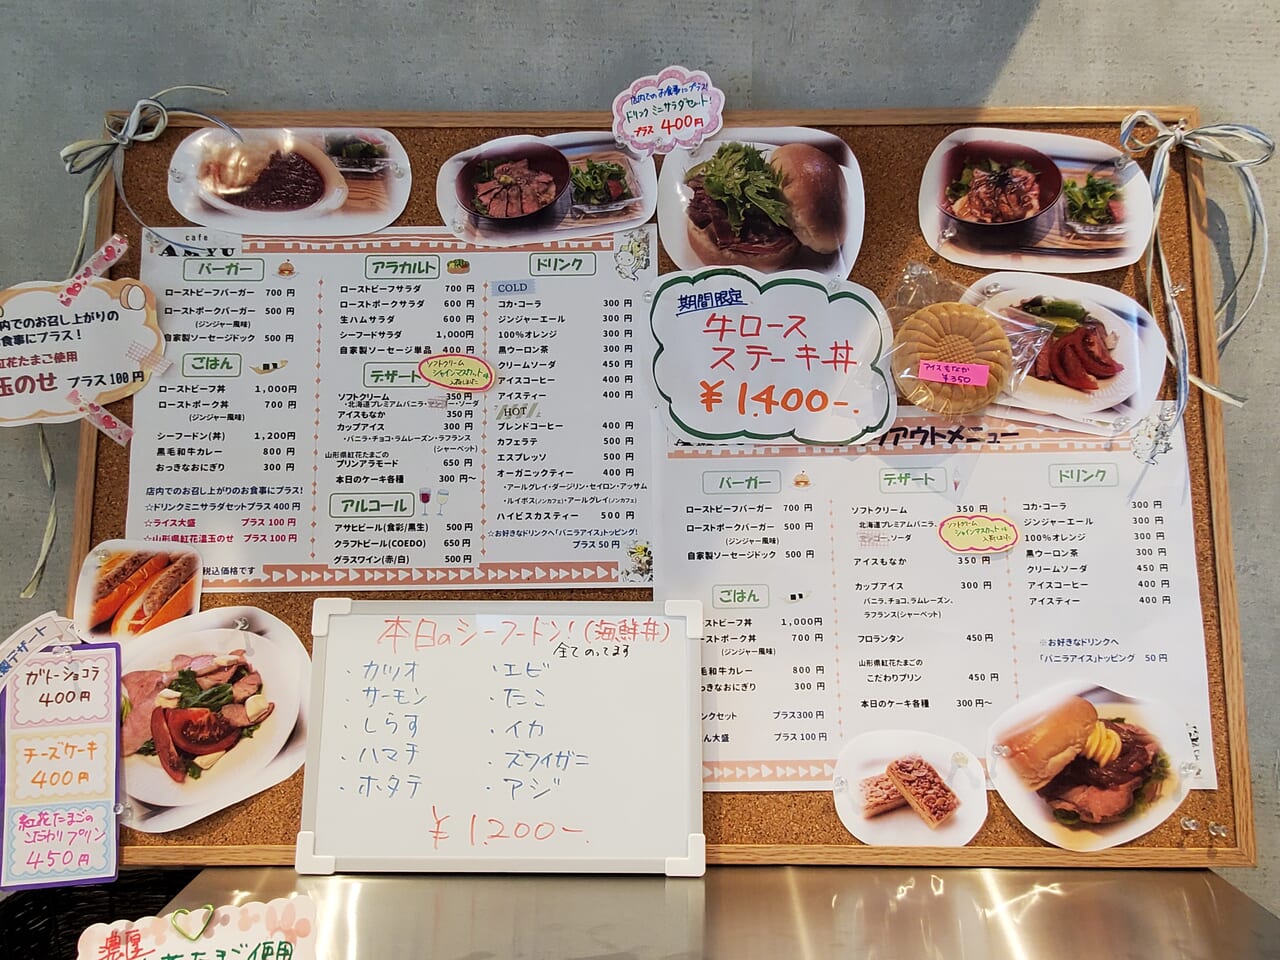 店内でのお食事にプラス!
ドリンクミニサラダセット!
プラス 400円
cafe
バーガー
ローストビーフバーガー 700 円
ローストポークバーガー 500 円
(ジンジャー風味)
自家製ソーセージドック 500 円
ごはん
ローストビーフ丼 1,000円
ローストポーク丼 700 円
(ジンジャー風味)
シーフードン(丼) 1,200円
黒毛和牛カレー 800 円
おっきなおにぎり 300 円
店内でのお召し上がりのお食事にプラス!
☆ドリンクミニサラダセットプラス 400 円
☆ライス大盛 プラス 100 円
☆山形県紅花温玉のせ プラス 100 円
税込価格です
アラカルト
ローストビーフサラダ 700 円
ローストポークサラダ 600 円
生ハムサラダ 600 円
シーフードサラダ 1,000円
自家製ソーセージ単品 400 円
デザート
ソフトクリーム
シャインマスカット
入荷しました
ソフトクリーム 350 円
・北海道プレミアムバニラ・マンゴー・ソーダ
アイスもなか 350 円
カップアイス 300 円
・バニラ・チョコ・ラムレーズン・ラフランス
(シャーベット)
山形県紅花たまごの
プリンアラモード 650 円
本日のケーキ各種 300 円〜
アルコール
アサヒビール(食彩/黒生) 500 円
クラフトビール(COEDO) 650 円
グラスワイン(赤/白) 500 円
ドリンク
COLD
コカ・コーラ 300 円
ジンジャーエール 300 円
100%オレンジ 300 円
黒ウーロン茶 300 円
クリームソーダ 450 円
アイスコーヒー 400 円
アイスティー 400 円
HOT
ブレンドコーヒー 400 円
カフェラテ 500 円
エスプレッソ 500 円
オーガニックティー 400 円
・アールグレイ・ダージリン・セイロン・アッサム
・ルイボス(ノンカフェ)・アールグレイ(ノンカフェ)
ハイビスカスティー 500 円
☆お好きなドリンクへ「バニラアイス」トッピング!
プラス 50 円
期間限定
牛ロース
ステーキ丼
¥1.400-.
アイスもなか
¥350
アウトメニュー
バーガー
ローストビーフバーガー 700 円
ローストポークバーガー 500 円
(ジンジャー風味)
自家製ソーセージドック 500 円
ごはん
ーストビーフ丼 1,000円
ーストポーク丼 700 円
(ジンジャー風味)
毛和牛カレー 800 円
っきなおにぎり 300 円
ンクセット プラス300 円
ん大盛 プラス 100 円
デザート
ソフトクリーム 350 円
北海道プレミアムバニラ、
マンゴー、ソーダ
ソフトクリーム
シャインマスカット
入荷しました
アイスもなか 350 円
カップアイス 300 円
バニラ、チョコ、ラムレーズン、
ラフランス(シャーベット)
フロランタン 450円
山形県紅花たまごの
こだわりプリン 450 円
本日のケーキ各種 300円〜
ドリンク
コカ・コーラ 300 円
ジンジャーエール 300 円
100%オレンジ 300 円
黒ウーロン茶 300 円
クリームソーダ 450 円
アイスコーヒー 400 円
アイスティー 400 円
※お好きなドリンクへ
「バニラアイス」トッピング 50円
内でのお召し上がりの
食事にプラス!
紅花たまご使用
玉のせ プラス100円
製デザート
ガトーショコラ
400円
チーズケーキ
400円
紅花たまごの
こだわりプリン
450円
本日のシーフードン!(海鮮丼)
全てのってます
・カツオ
・サーモン
・しらす
・ハマチ
・ホタテ
・エビ
・たこ
・イカ
・ズワイガニ
・アジ
¥1.200-.
濃厚
花たまご使用